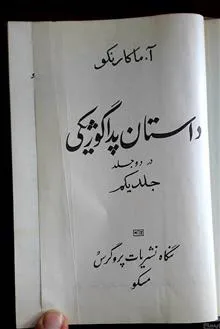 آ. ماکارنکو
داستان پداگوژیکی
در دو جلد
جلد یکم
بنگاه نشریات پروگرس
مسکو